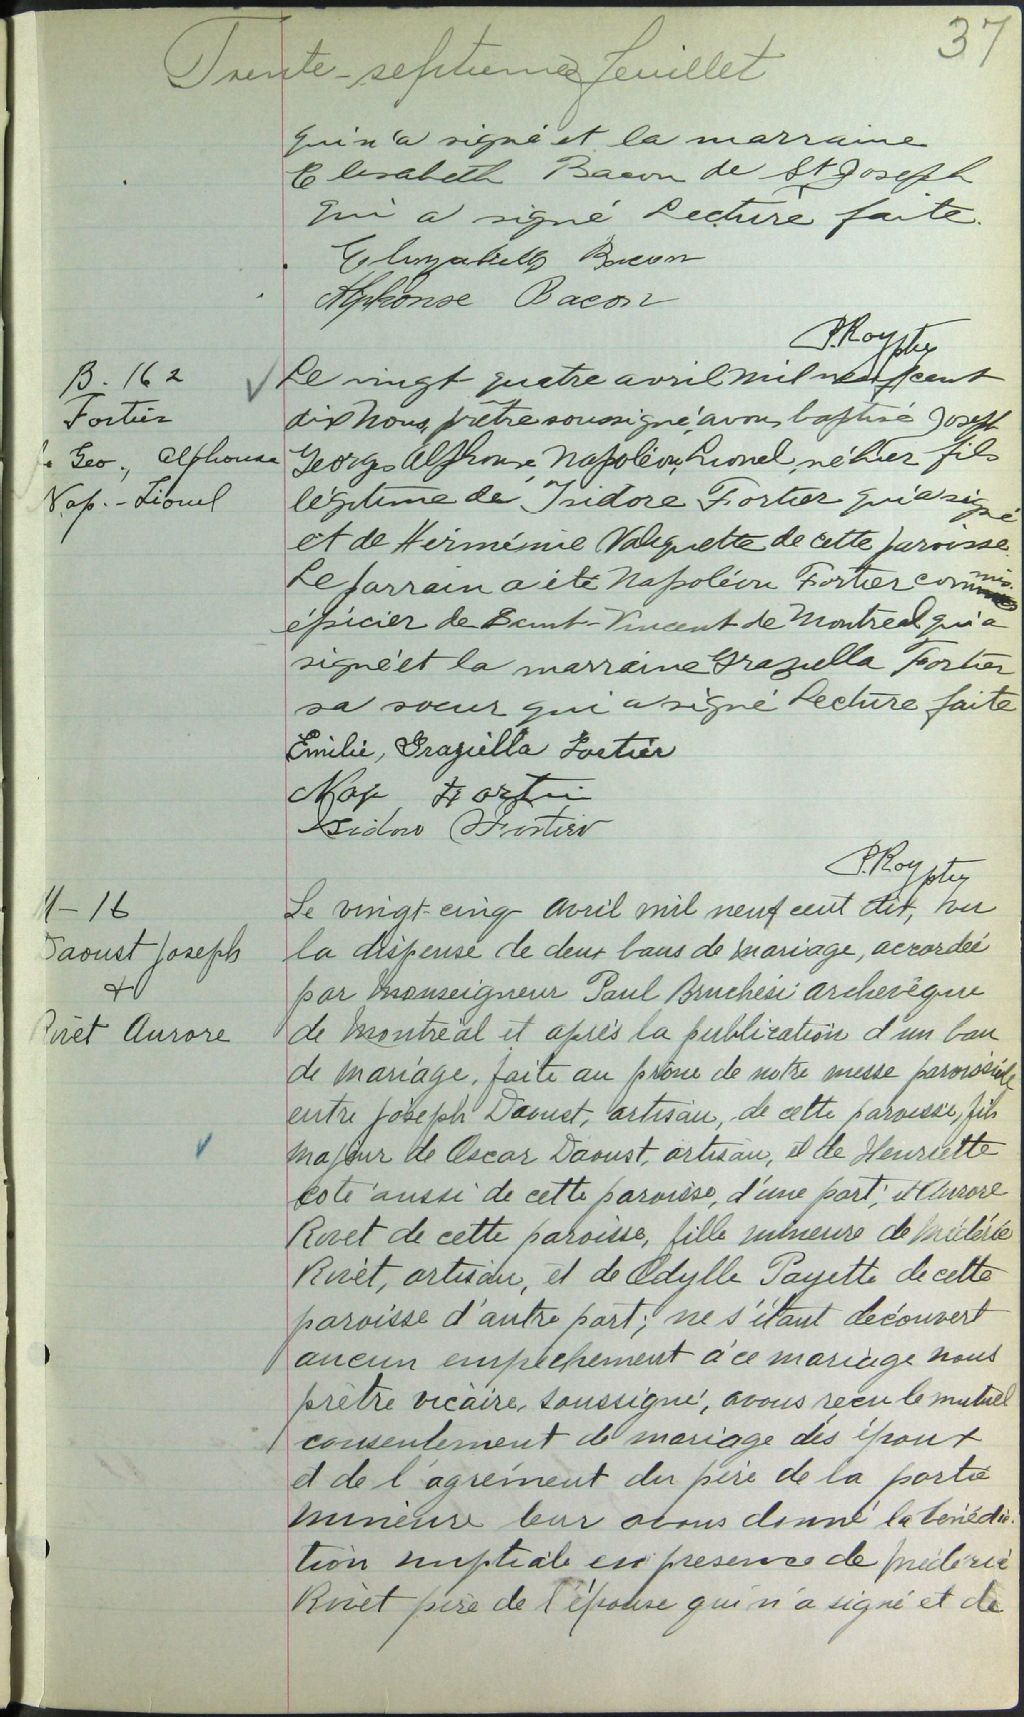 37
Trente-septième feuillet
qui n'a signé et la marraine
Elisabeth Bacon de St Joseph
qui a signé Lecture faite.
Elizabeth Bacon
Alphonse Bacon
P. Roy ptre
B. 162
Fortier
Geo., Alphonse
Nap. - Lionel
Le vingt quatre avril mil neuf cent
dix Nous, prêtre soussigné, avons baptisé Joseph
Georges Alphonse Napoléon Lionel, né hier fils
légitime de Isidore Fortier qui a signé
et de Herménie Valiquette de cette paroisse.
Le parrain a été Napoléon Fortier commis
épicier de Saint-Vincent de Montréal qui a
signé et la marraine Graziella Fortier
sa soeur qui a signé Lecture faite
Emilie, Graziella Fortier
Nap Fortier
Isidore Fortier
P. Roy ptre
M-16
Daoust Joseph
+
Rivet Aurore
Le vingt-cinq avril mil neuf cent dix, vu
la dispense de deux bans de mariage, accordée
par Monseigneur Paul Bruchési archevêque
de Montréal et après la publication d'un ban
de mariage, faite au prône de notre messe paroissiale
entre Joseph Daoust, artisan, de cette paroisse, fils
majeur de Oscar Daoust, artisan, et de Henriette
Coté aussi de cette paroisse, d'une part; et Aurore
Rivet de cette paroisse, fille mineure de Médéric
Rivet, artisan, et de Odylle Payette de cette
paroisse d'autre part; ne s'étant découvert
aucun empêchement à ce mariage nous
prêtre vicaire, soussigné, avons reçu le mutuel
consentement de mariage des époux
et de l'agrément du père de la partie
mineure leur avons donné la bénédic-
tion nuptiale en présence de Médéric
Rivet père de l'épouse qui n'a signé et de